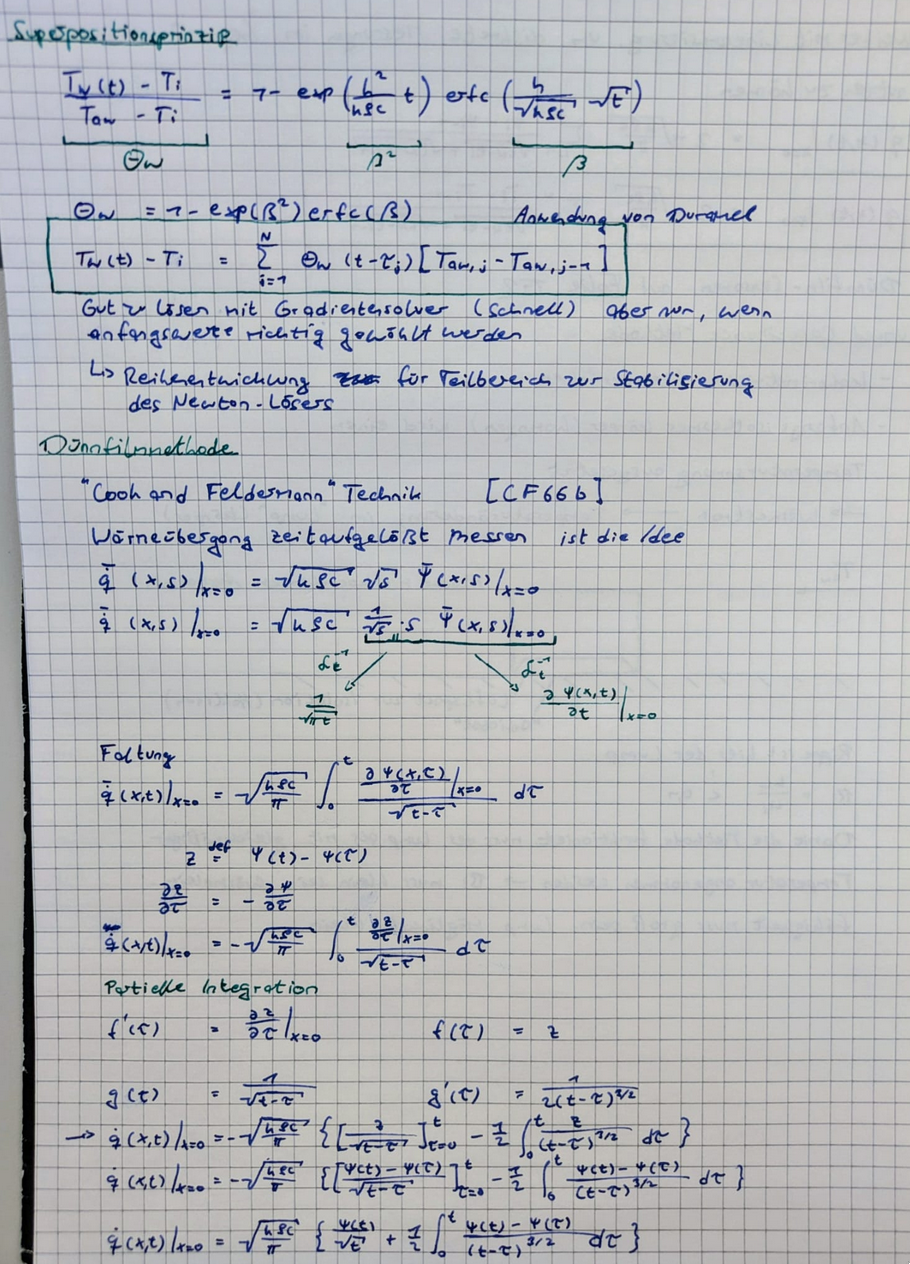 Superpositionsprinzip
(T_w(t) - T_i) / (T_aw - T_i) = 1 - exp(h²/(kρc) t) erfc(h/√(kρc) √t)
Θ_w β² β
Θ_w = 1 - exp(β²) erfc(β) Anwendung von Duhamel
T_w(t) - T_i = Σ_{i=1}^{N} Θ_w (t - τ_j) [T_aw,j - T_aw,j-1]
Gut zu lösen mit Gradientensolver (schnell) aber nur, wenn
anfangswerte richtig gewählt werden
↳ Reihenentwicklung für Teilbereich zur Stabilisierung
des Newton-Lösers
Dünnfilmmethode
"Cook and Feldermann" Technik [CF66b]
Wärmeübergang zeitaufgelößt messen ist die Idee
q̄̇ (x,s)|_{x=0} = √(kρc) √s Ψ̄(x,s)|_{x=0}
q̄̇ (x,s)|_{x=0} = √(kρc) 1/√s · s Ψ̄(x,s)|_{x=0}
ℒ_t^{-1} ℒ_t^{-1}
1/√(πt) ∂Ψ(x,t)/∂t |_{x=0}
Faltung
q̄̇ (x,t)|_{x=0} = √(kρc/π) ∫_0^t (∂Ψ(x,τ)/∂τ |_{x=0}) / √(t-τ) dτ
z =^{def} Ψ(t) - Ψ(τ)
∂z/∂τ = - ∂Ψ/∂τ
q̇(x,t)|_{x=0} = -√(kρc/π) ∫_0^t (∂z/∂τ |_{x=0}) / √(t-τ) dτ
Partielle Integration
f'(τ) = ∂z/∂τ |_{x=0} f(τ) = z
g(τ) = 1/√(t-τ) g'(τ) = 1/(2(t-τ)^{3/2})
→ q̇(x,t)|_{x=0} = -√(kρc/π) {[z/√(t-τ)]_{τ=0}^t - 1/2 ∫_0^t z/(t-τ)^{3/2} dτ}
q̇(x,t)|_{x=0} = -√(kρc/π) {[(Ψ(t) - Ψ(τ))/√(t-τ)]_{τ=0}^t - 1/2 ∫_0^t (Ψ(t) - Ψ(τ))/(t-τ)^{3/2} dτ}
q̇(x,t)|_{x=0} = √(kρc/π) {Ψ(t)/√t + 1/2 ∫_0^t (Ψ(t) - Ψ(τ))/(t-τ)^{3/2} dτ}